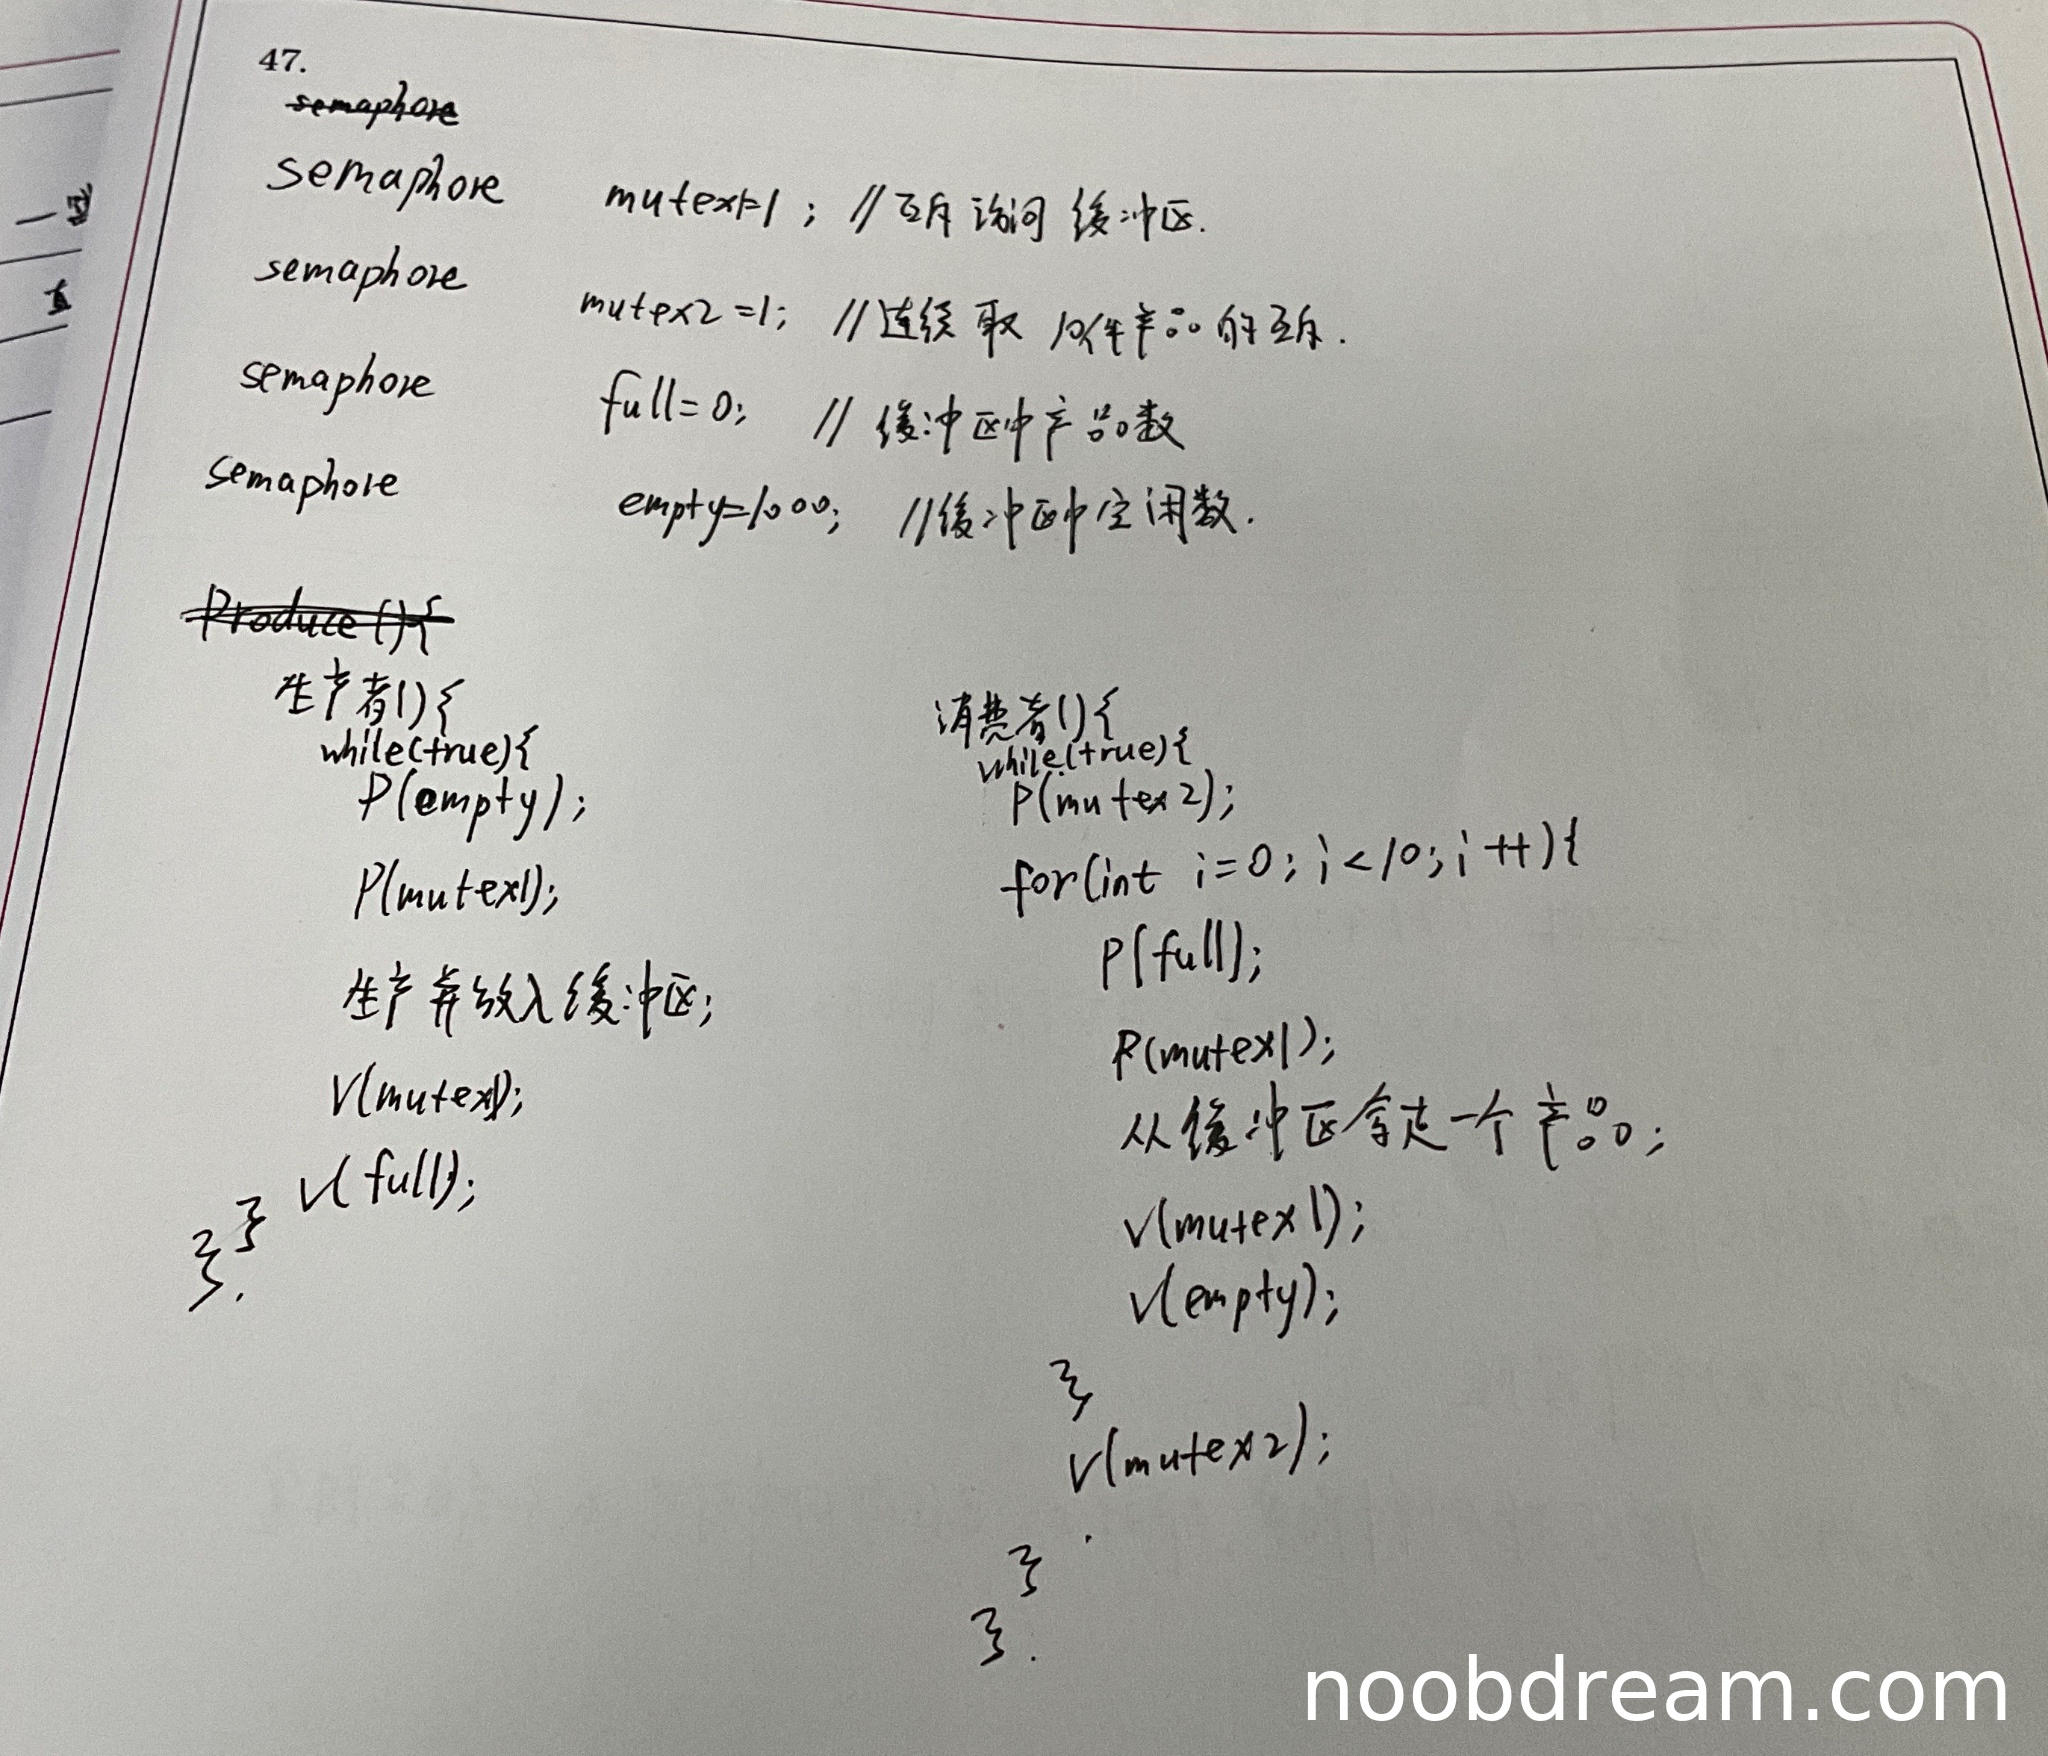 47.
semaphore
semaphore mutex1=1; //互斥访问缓冲区.
semaphore mutex2=1; //连续取10件产品的互斥.
semaphore full=0; //缓冲区中产品数
semaphore empty=1000; //缓冲区中空闲数.
Produce(){
生产者(){
while(true){
P(empty);
P(mutex1);
生产并放入缓冲区;
V(mutex1);
V(full);
}
}.
消费者(){
while(true){
P(mutex2);
for(int i=0;i<10;i++){
P(full);
P(mutex1);
从缓冲区拿走一个产品;
V(mutex1);
V(empty);
}
V(mutex2);
}
}.
noobdream.com